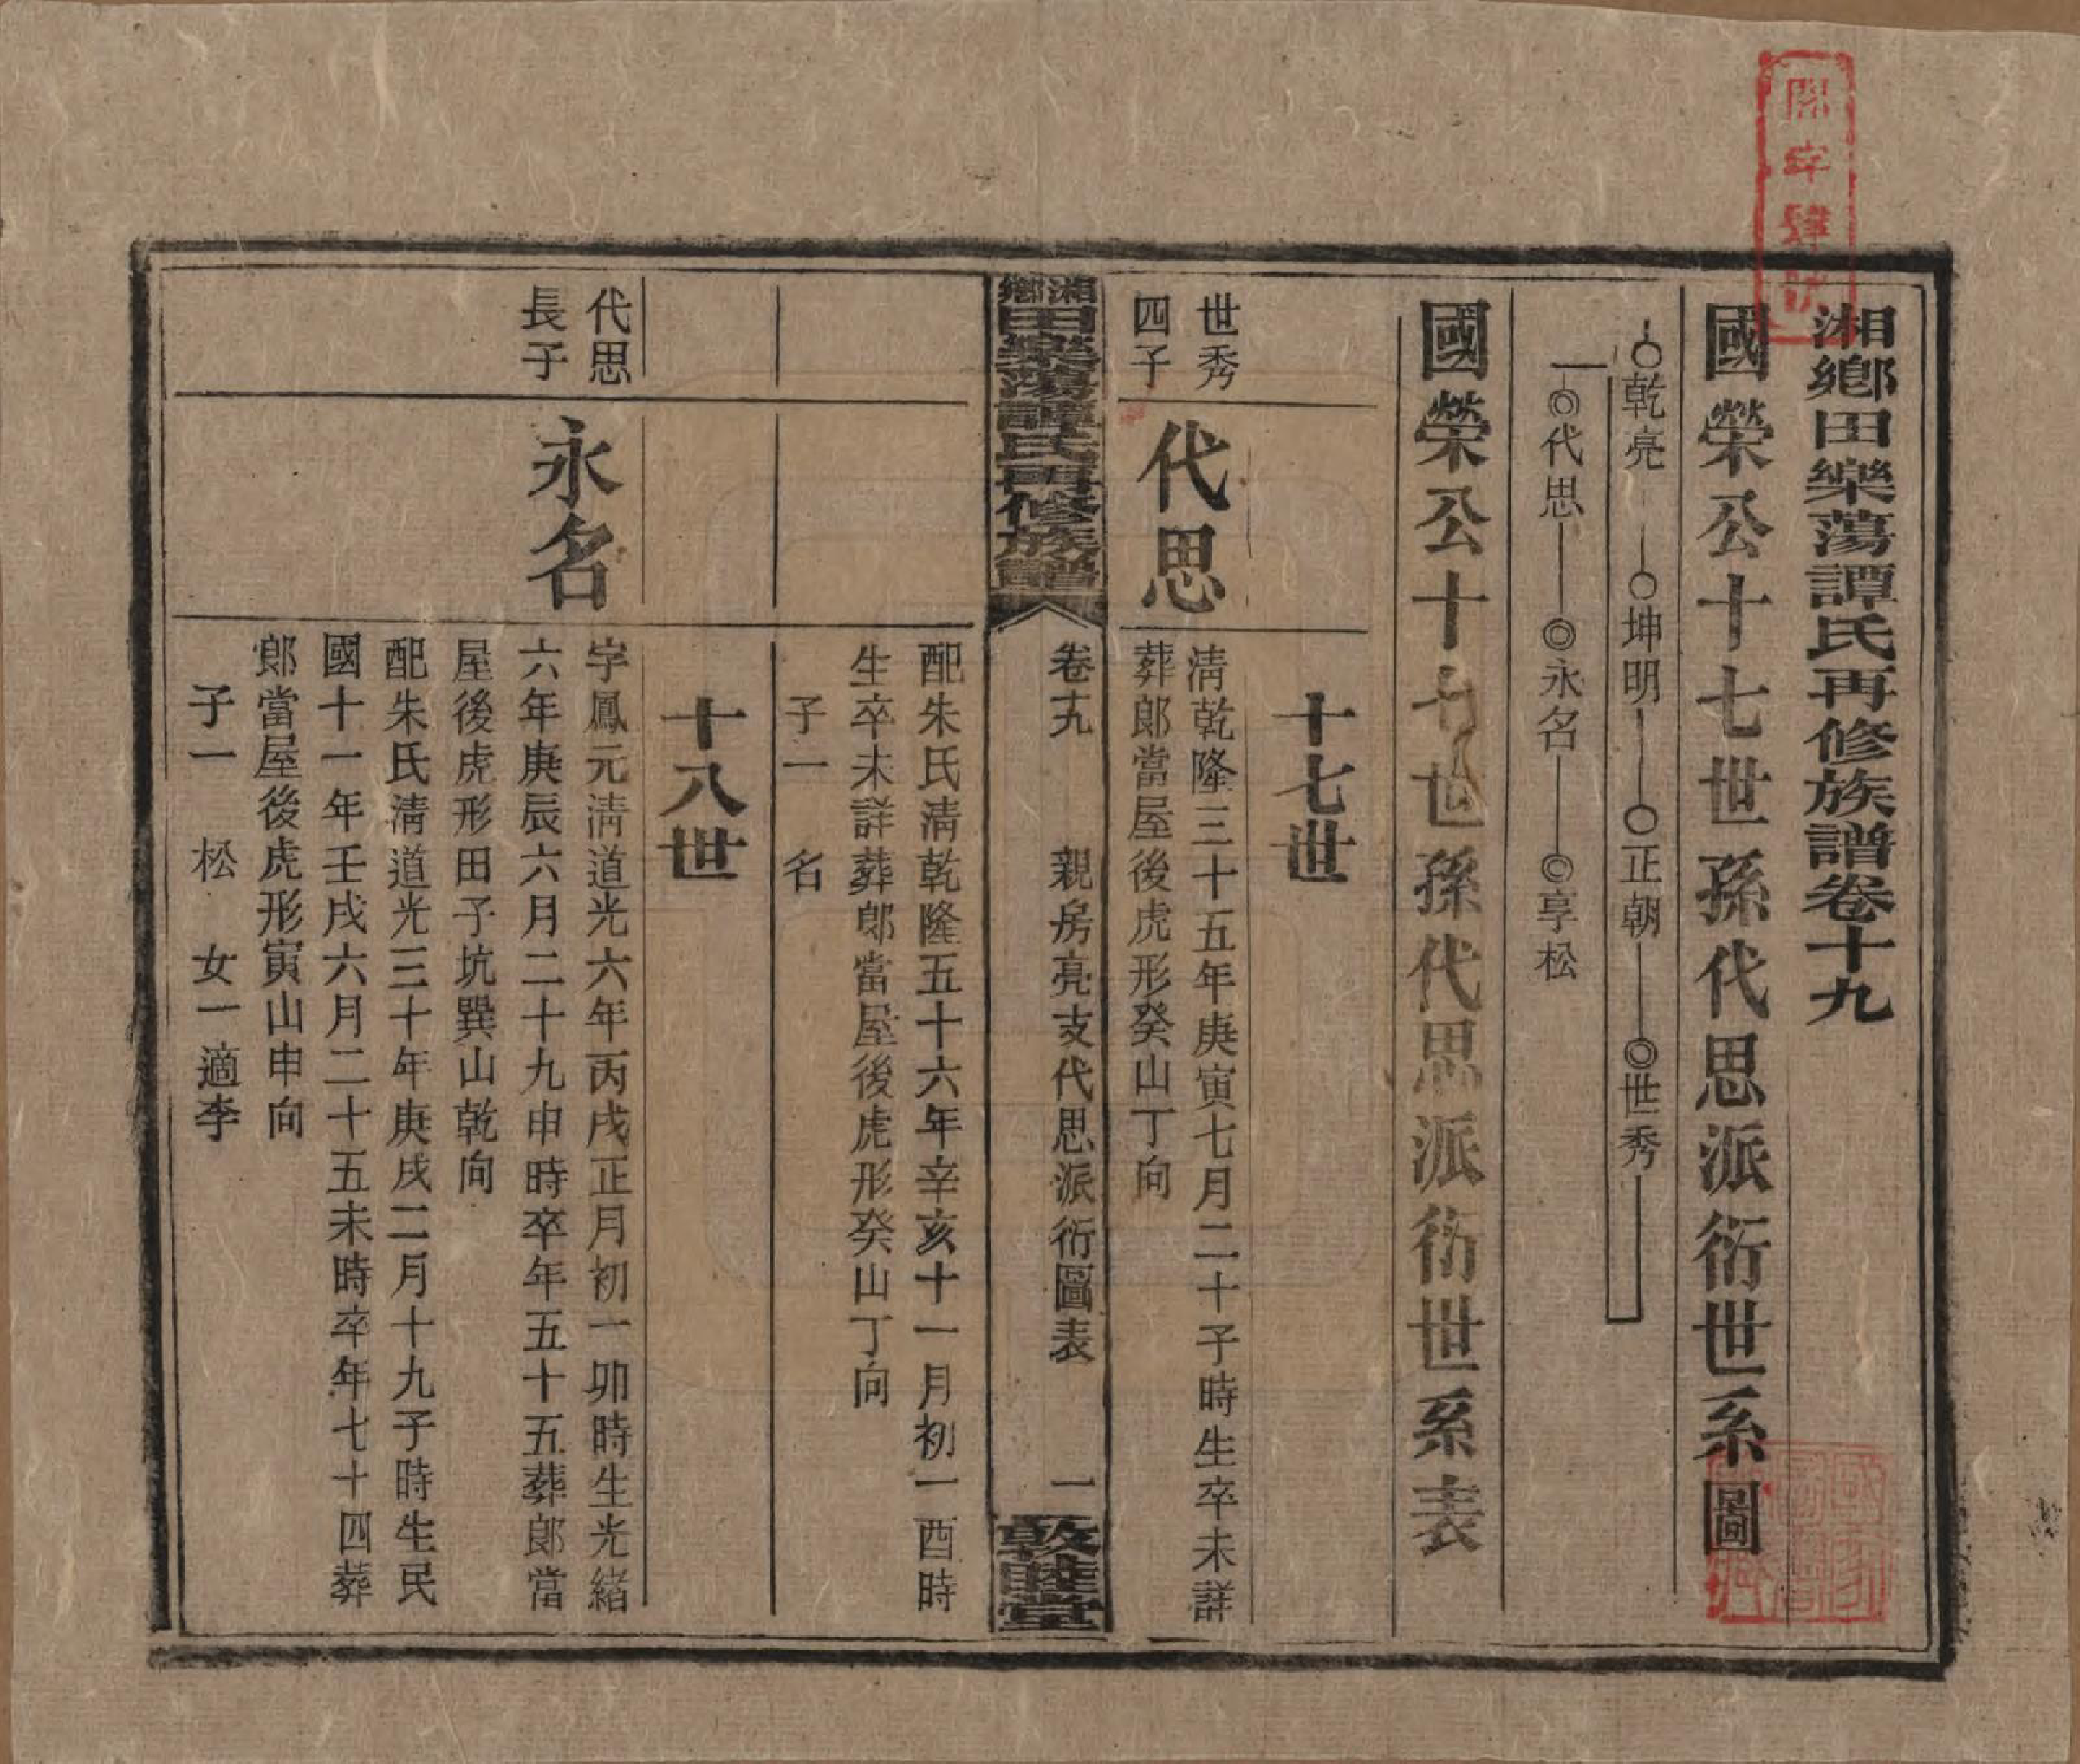 湘鄉田樂蕩譚氏再修族譜卷十九
國榮公十七世孫代思派衍世系圖
乾亮 坤明 正朝 世秀
代思 永名 享松
國榮公十七世孫代思派衍世系表
十七世
世秀
四子
代思
清乾隆三十五年庚寅七月二十子時生卒未詳
葬郎當屋後虎形癸山丁向
湘鄉田樂蕩譚氏再修族譜
卷十九 親房亮支代思派衍圖表 一
敦睦堂
配朱氏清乾隆五十六年辛亥十一月初一酉時
生卒未詳葬郎當屋後虎形癸山丁向
子一 名
十八世
代思
長子
永名
字鳳元清道光六年丙戌正月初一卯時生光緒
六年庚辰六月二十九申時卒年五十五葬郎當
屋後虎形田子坑巽山乾向
配朱氏清道光三十年庚戌二月十九子時生民
國十一年壬戌六月二十五未時卒年七十四葬
郎當屋後虎形寅山申向
子一 松 女一適李